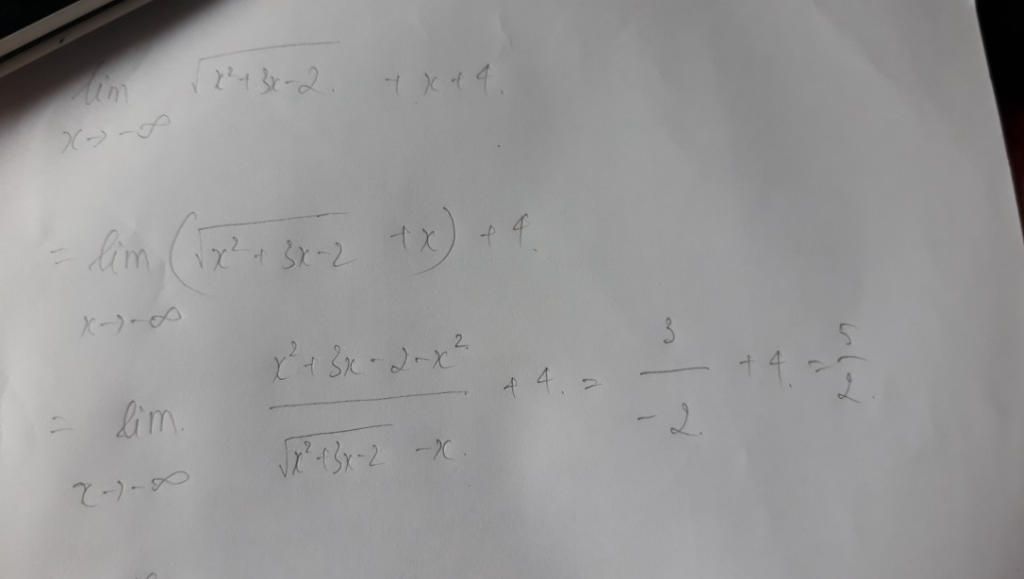 lim √(x²+3x-2) + x + 4.
x→-∞
= lim (√(x²+3x-2) + x) + 4.
x→-∞
= lim. (x²+3x-2-x²)/(√(x²+3x-2) - x.) + 4. = 3/(-2.) + 4. = 5/2.
x→-∞